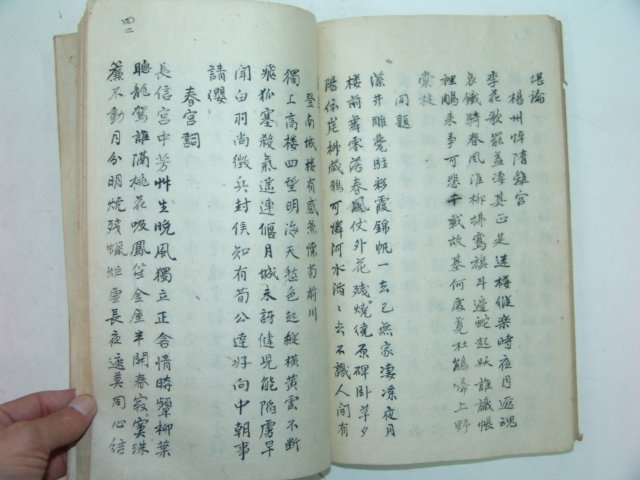 堪論
楊州悼隋離宮
李花歌罷益凄其正是迷樓催樂時夜月遊魂
哀鐵騎春風淮柳拂鸞旗斗邊蛇起妖誰識帳
裡鵑来事可悲千載故基何處覓杜鵑啼上野
棠枝
同題
藻井雕甍駐彩霞錦帆一去已無家凄凉夜月
樓前舞零落春風仗外花殘燒繞原碑卧草夕
陽依岸柳藏鴉可憐河水滔〻去不識人间有
登南城樓有感無懷荀前川
獨上高樓四望明海天愁色起縱横黄雲不断
飛狐塞殺氣遥連偃月城未訝健児能陷虜早
聞白羽尚徴兵封侯知有荀公達好向中朝事
請纓
春宮詞
長信宮中芳艸生晚風獨立正含情時顰柳葉
聴龍駕誰隔桃花吸鳳笙金屋半開春寂寞珠
簾不動月分明燒残蠟炬虛長夜遮莫同心結
四二